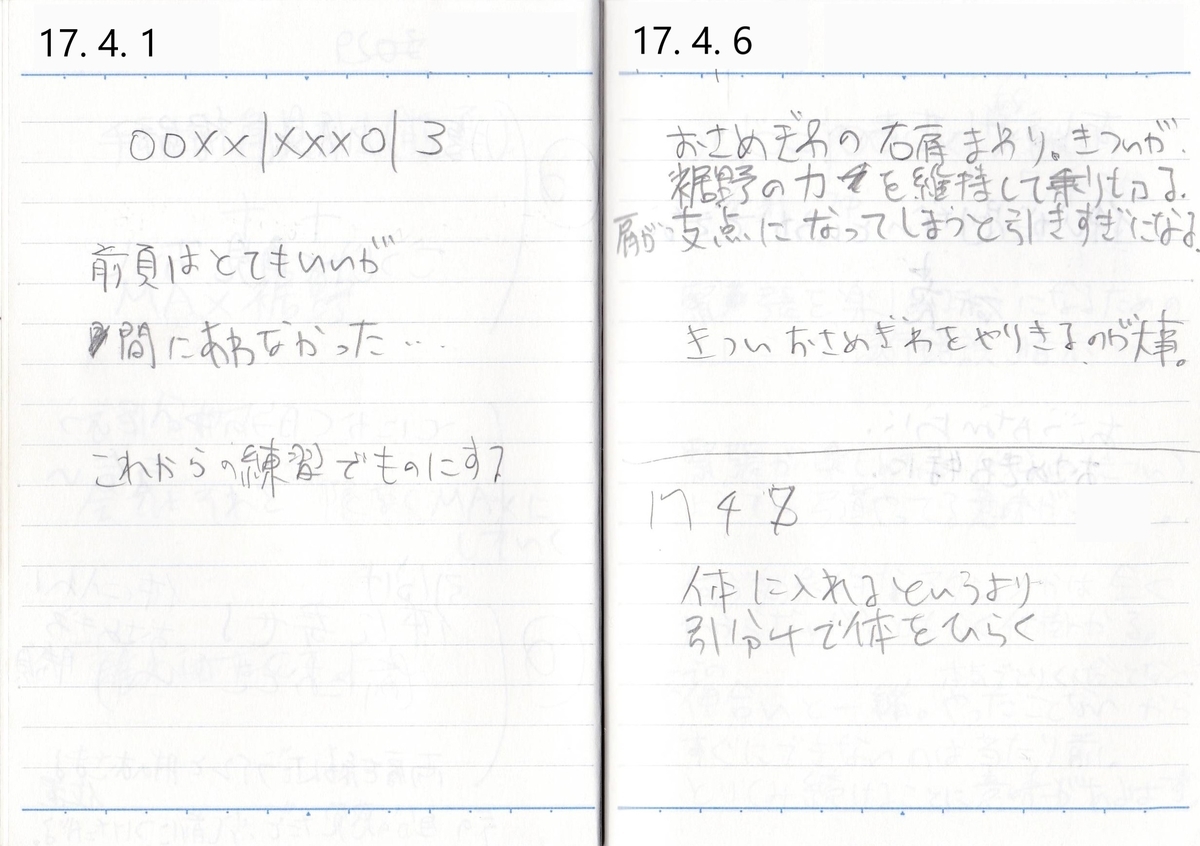 17. 4. 1
00xx|xxx0|3
前頁はとてもいいが
間にあわなかった…
これからの練習でものにする
17. 4. 6
おさめぎわの右肩まわり。きついが、
裾野の力を維持して乗り切る。
肩が支点になってしまうと引きすぎになる。
きついおさめぎわをやりきるのが大事。
17 4 8
体に入れるというより
引分けで体をひらく